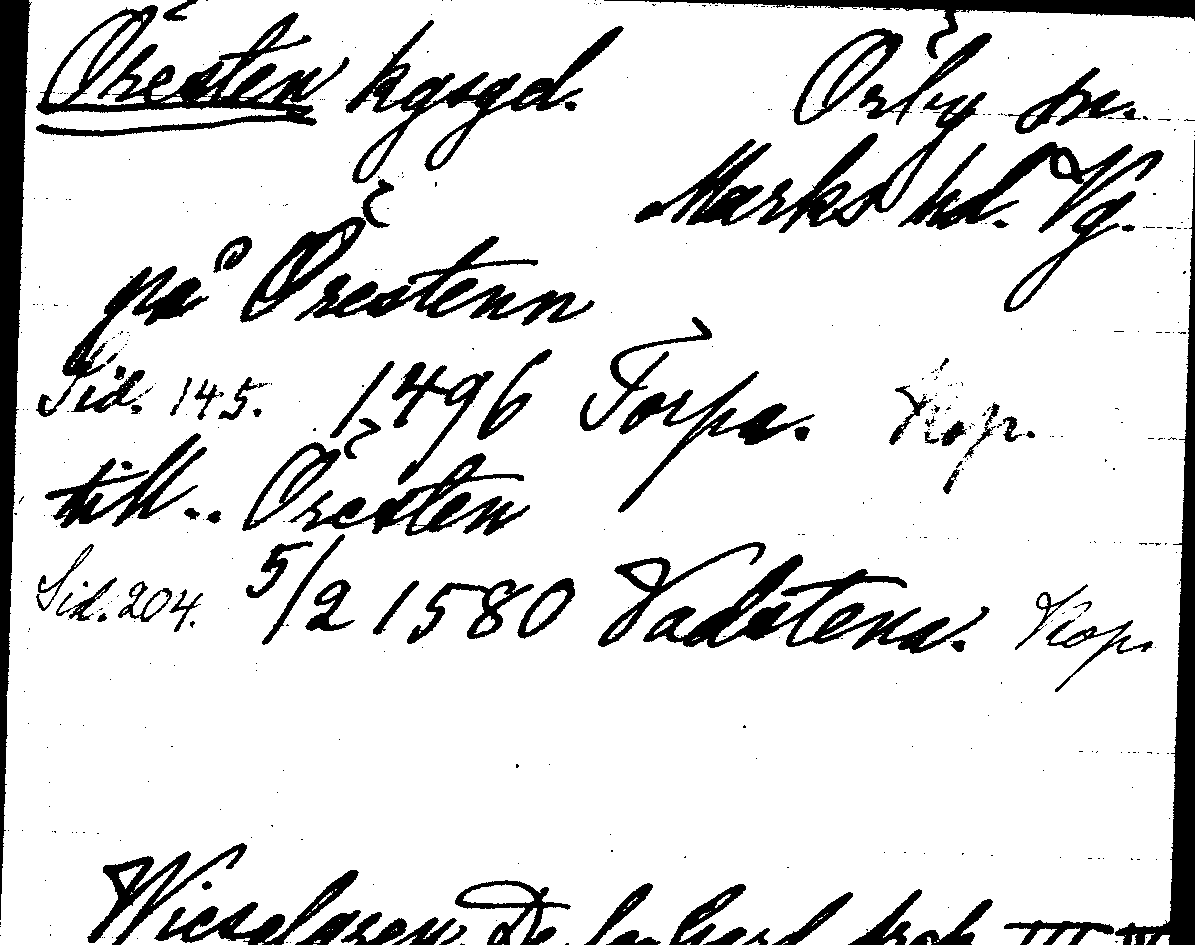 Öresten kgsgd. Örby sn.
Marks hd. Vg.
på Örestenn
Sid. 145. 1496 Torpa. Kop.
till.. Öresten
Sid. 204. 5/2 1580 Vadstena. Kop.
Wieselgren De la Gard. ark III